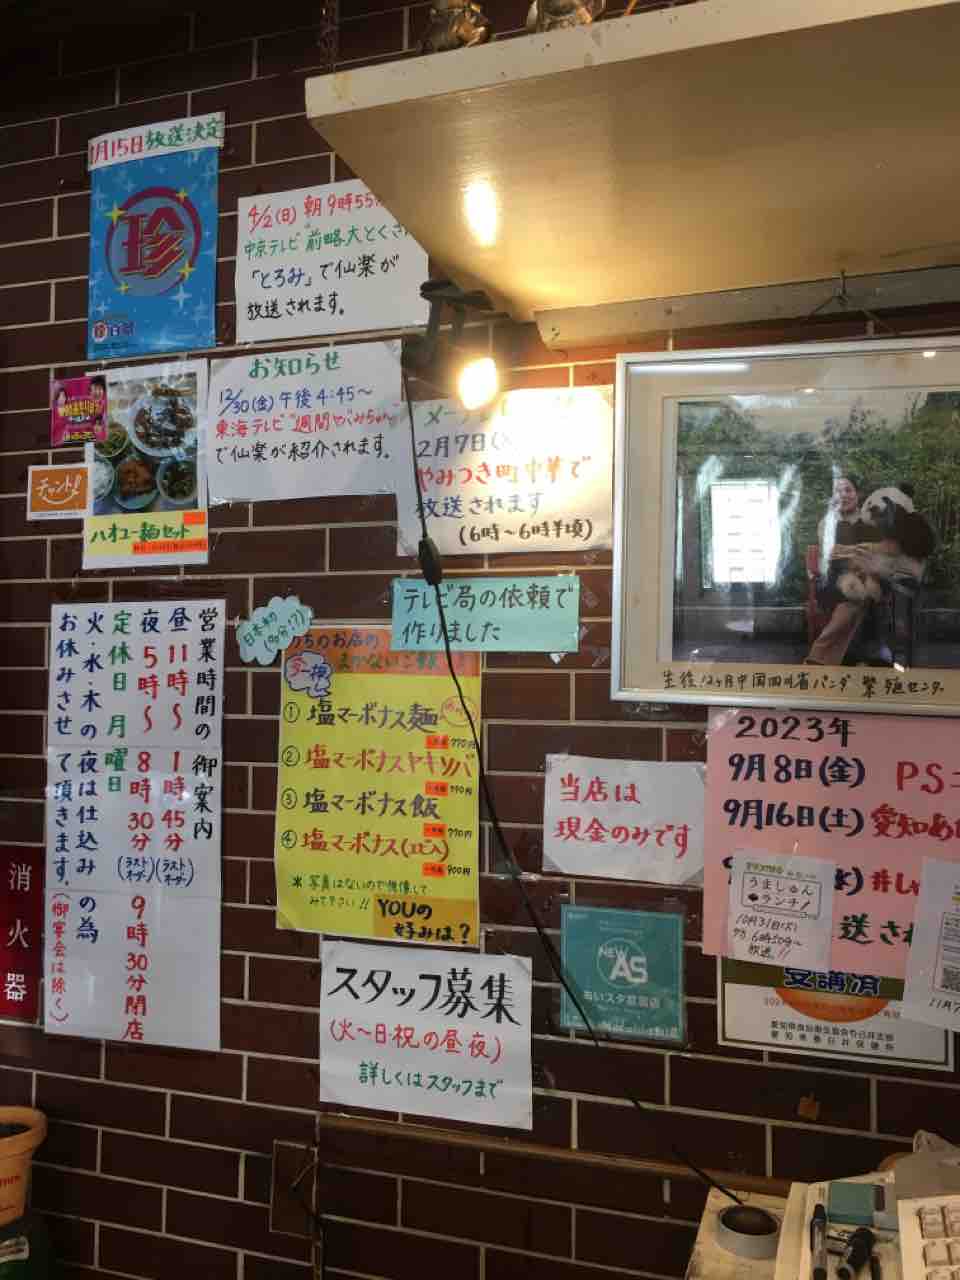 月15日放送決定
珍
4/2(日)朝9時55
中京テレビ"前略、大とくさん
「とろみ」で仙楽が
放送されます。
お知らせ
12/30(金)午後4:45〜
東海テレビ"週間やぐみちゃん
で仙楽が紹介されます。
2月7日
やみつき町中華で
放送されます
(6時〜6時半頃)
チャント!
ハオユー麺セット
生後12ヶ月中国四川省パンダ繁殖センター
営業時間の御案内
昼11時〜1時45分(ラストオーダー)
夜5時〜8時30分(ラストオーダー)9時30分閉店
定休日 月曜日
火・水・木の夜は仕込みの為
お休みさせて頂きます。(御宴会は除く)
消火器
日本初(多分!?)
テレビ局の依頼で
作りました
うちのお店の
まかないご飯
①塩マーボナス麺
770円
②塩マーボナスヤキソバ
③塩マーボナス飯
770円
④塩マーボナス(エビ入)
900円
*写真はないので想像して
みて下さい!!
YOUの
好みは?
スタッフ募集
(火〜日祝の昼夜)
詳しくはスタッフまで
当店は
現金のみです
NEW
AS
あいスタ認証店
2023年
9月8日(金) PS
9月16日(土)愛知あ
送さ
うましゅん
ランチ!
10月31日(火)
放送!!
受講済
11月7